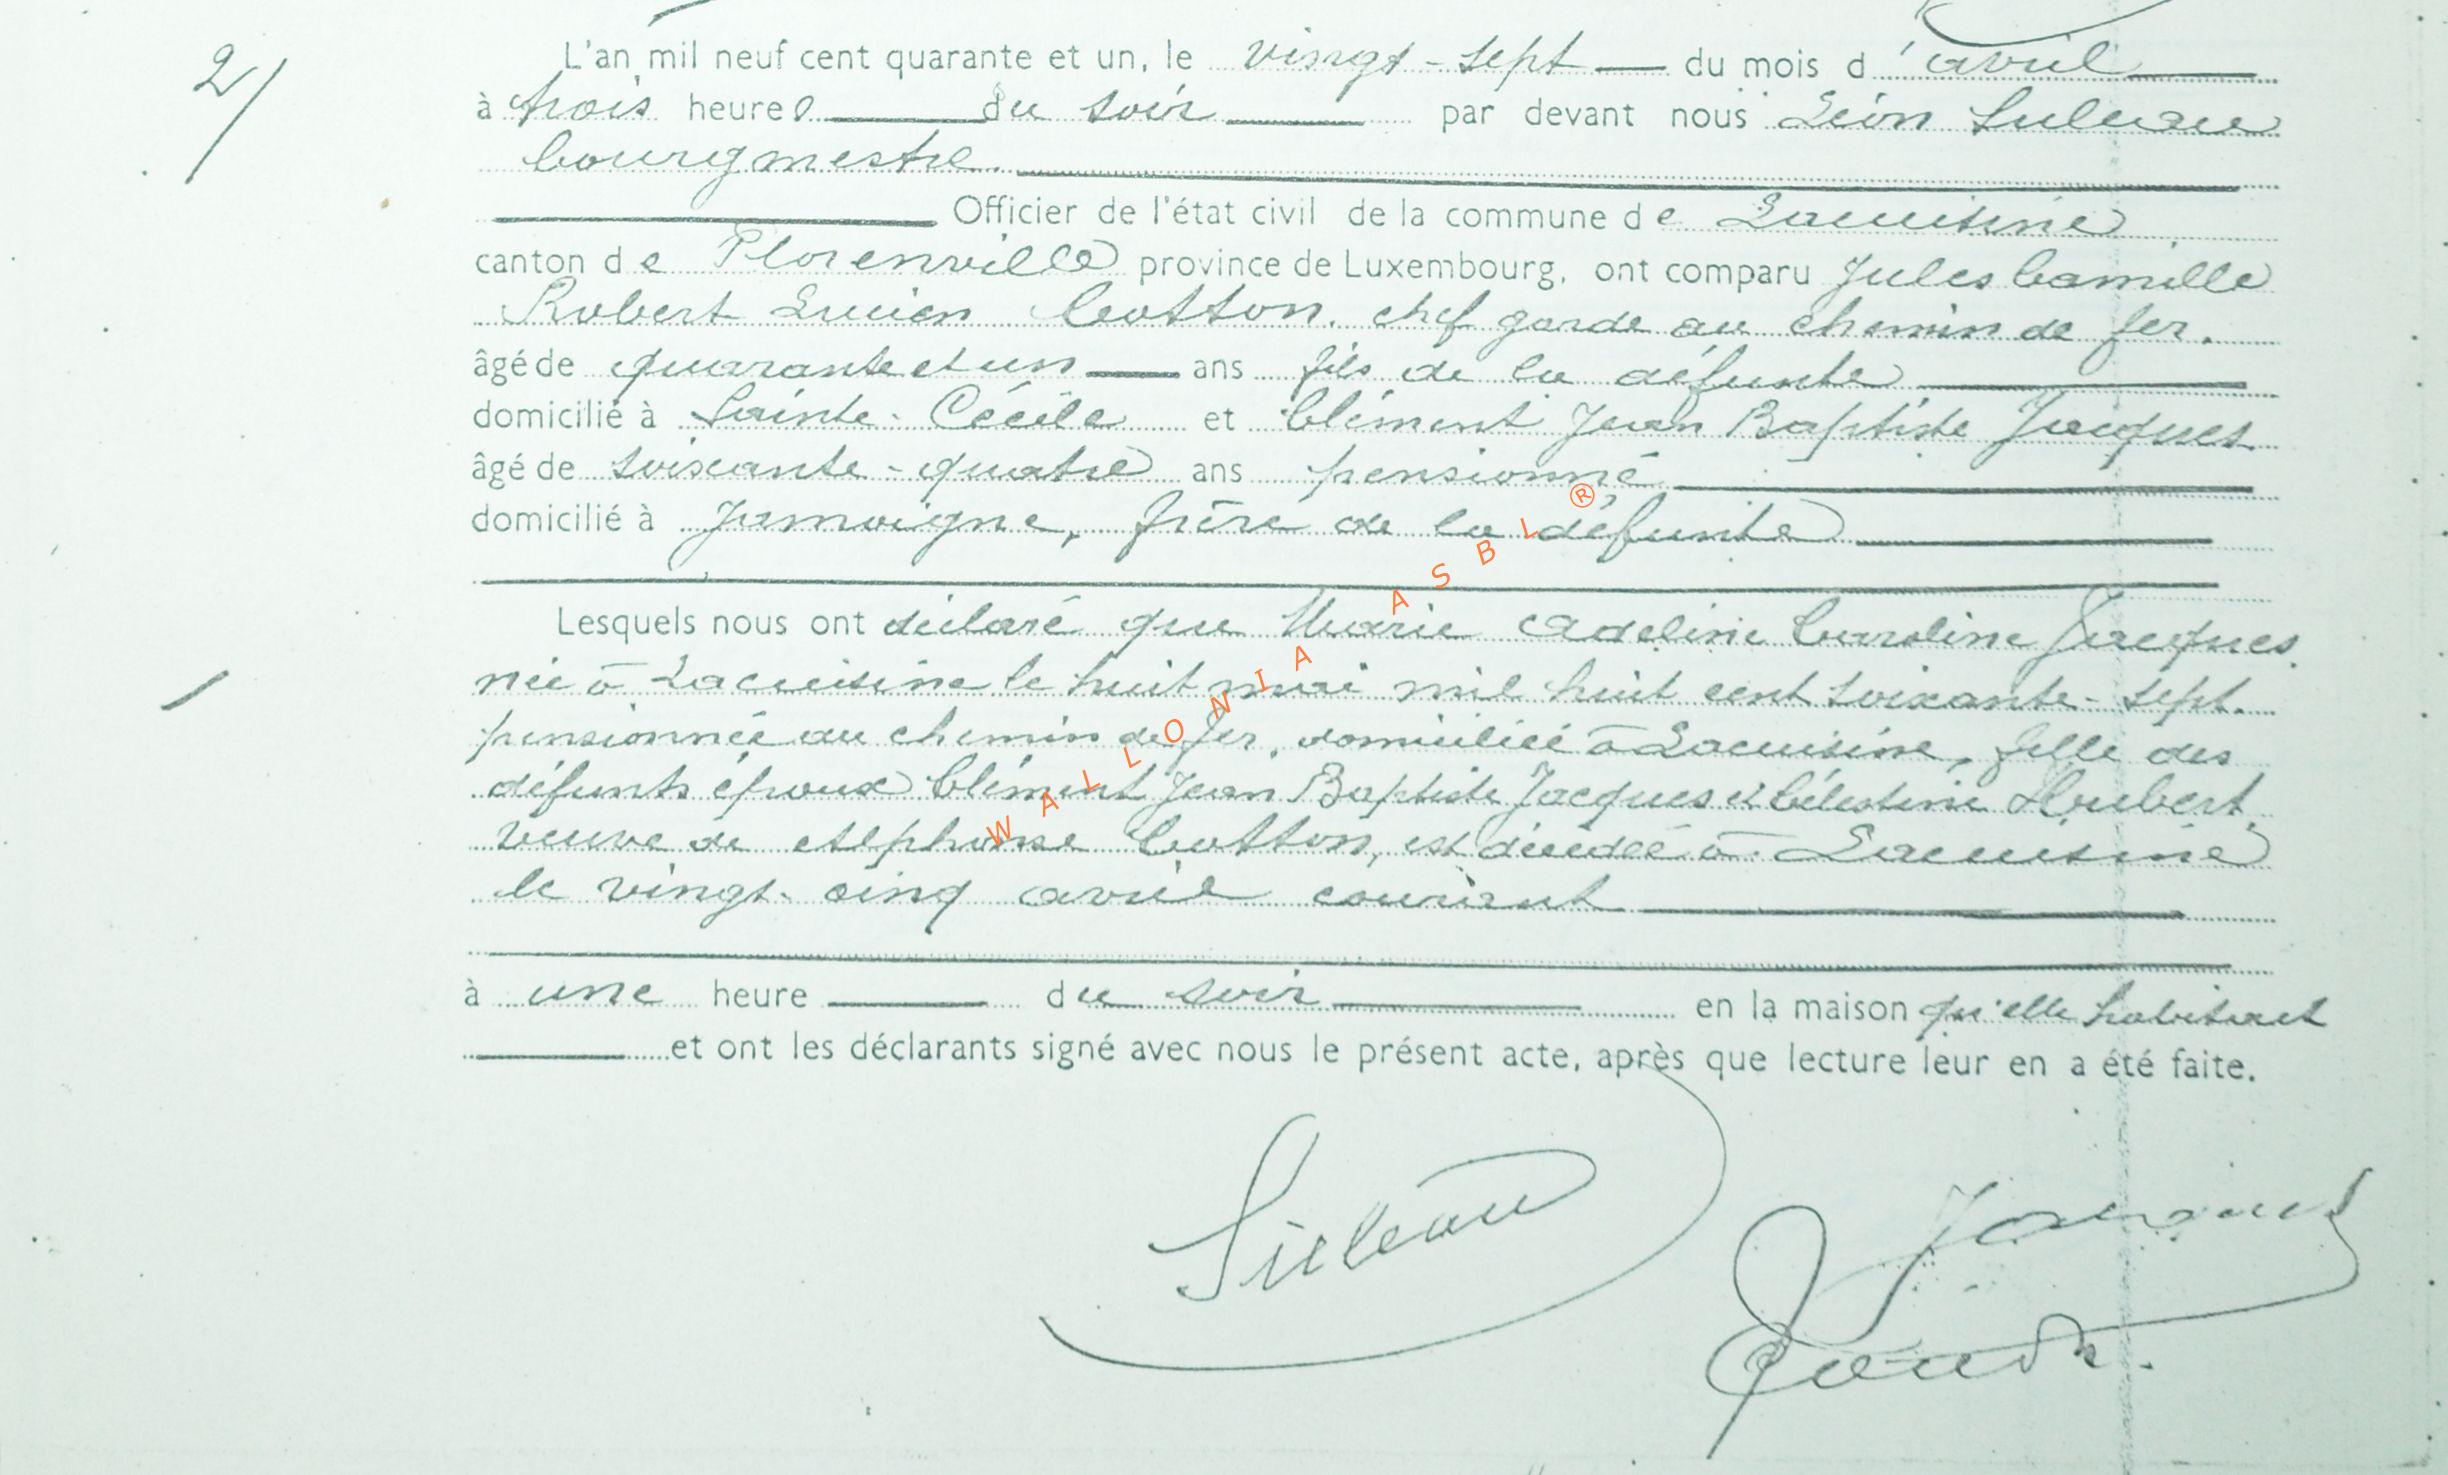 2/
L'an mil neuf cent quarante et un, le vingt-sept du mois d'avril
à trois heures du soir par devant nous Léon Suleau
bourgmestre.
Officier de l'état civil de la commune de Lacuisine
canton de Florenville province de Luxembourg, ont comparu Jules Camille
Robert Lucien Cotton, chef garde au chemin de fer.
âgé de quarante et un ans fils de la défunte
domicilié à Sainte-Cécile et Clément Jean Baptiste Jacques
âgé de soixante-quatre ans pensionné
domicilié à Jamoigne, frère de la défunte
Lesquels nous ont déclaré que Marie Adeline Caroline Jacques
née à Lacuisine le huit mai mil huit cent soixante-sept.
pensionnée au chemin de fer, domiciliée à Lacuisine, fille des
défunts époux Clément Jean Baptiste Jacques et Célestine Hubert
veuve de Alphonse Cotton, est décédée à Lacuisine
le vingt-cinq avril courant
à une heure du soir en la maison qu'elle habitait
et ont les déclarants signé avec nous le présent acte, après que lecture leur en a été faite.
Suleau
Jacques
WALLONIA ASBL ®